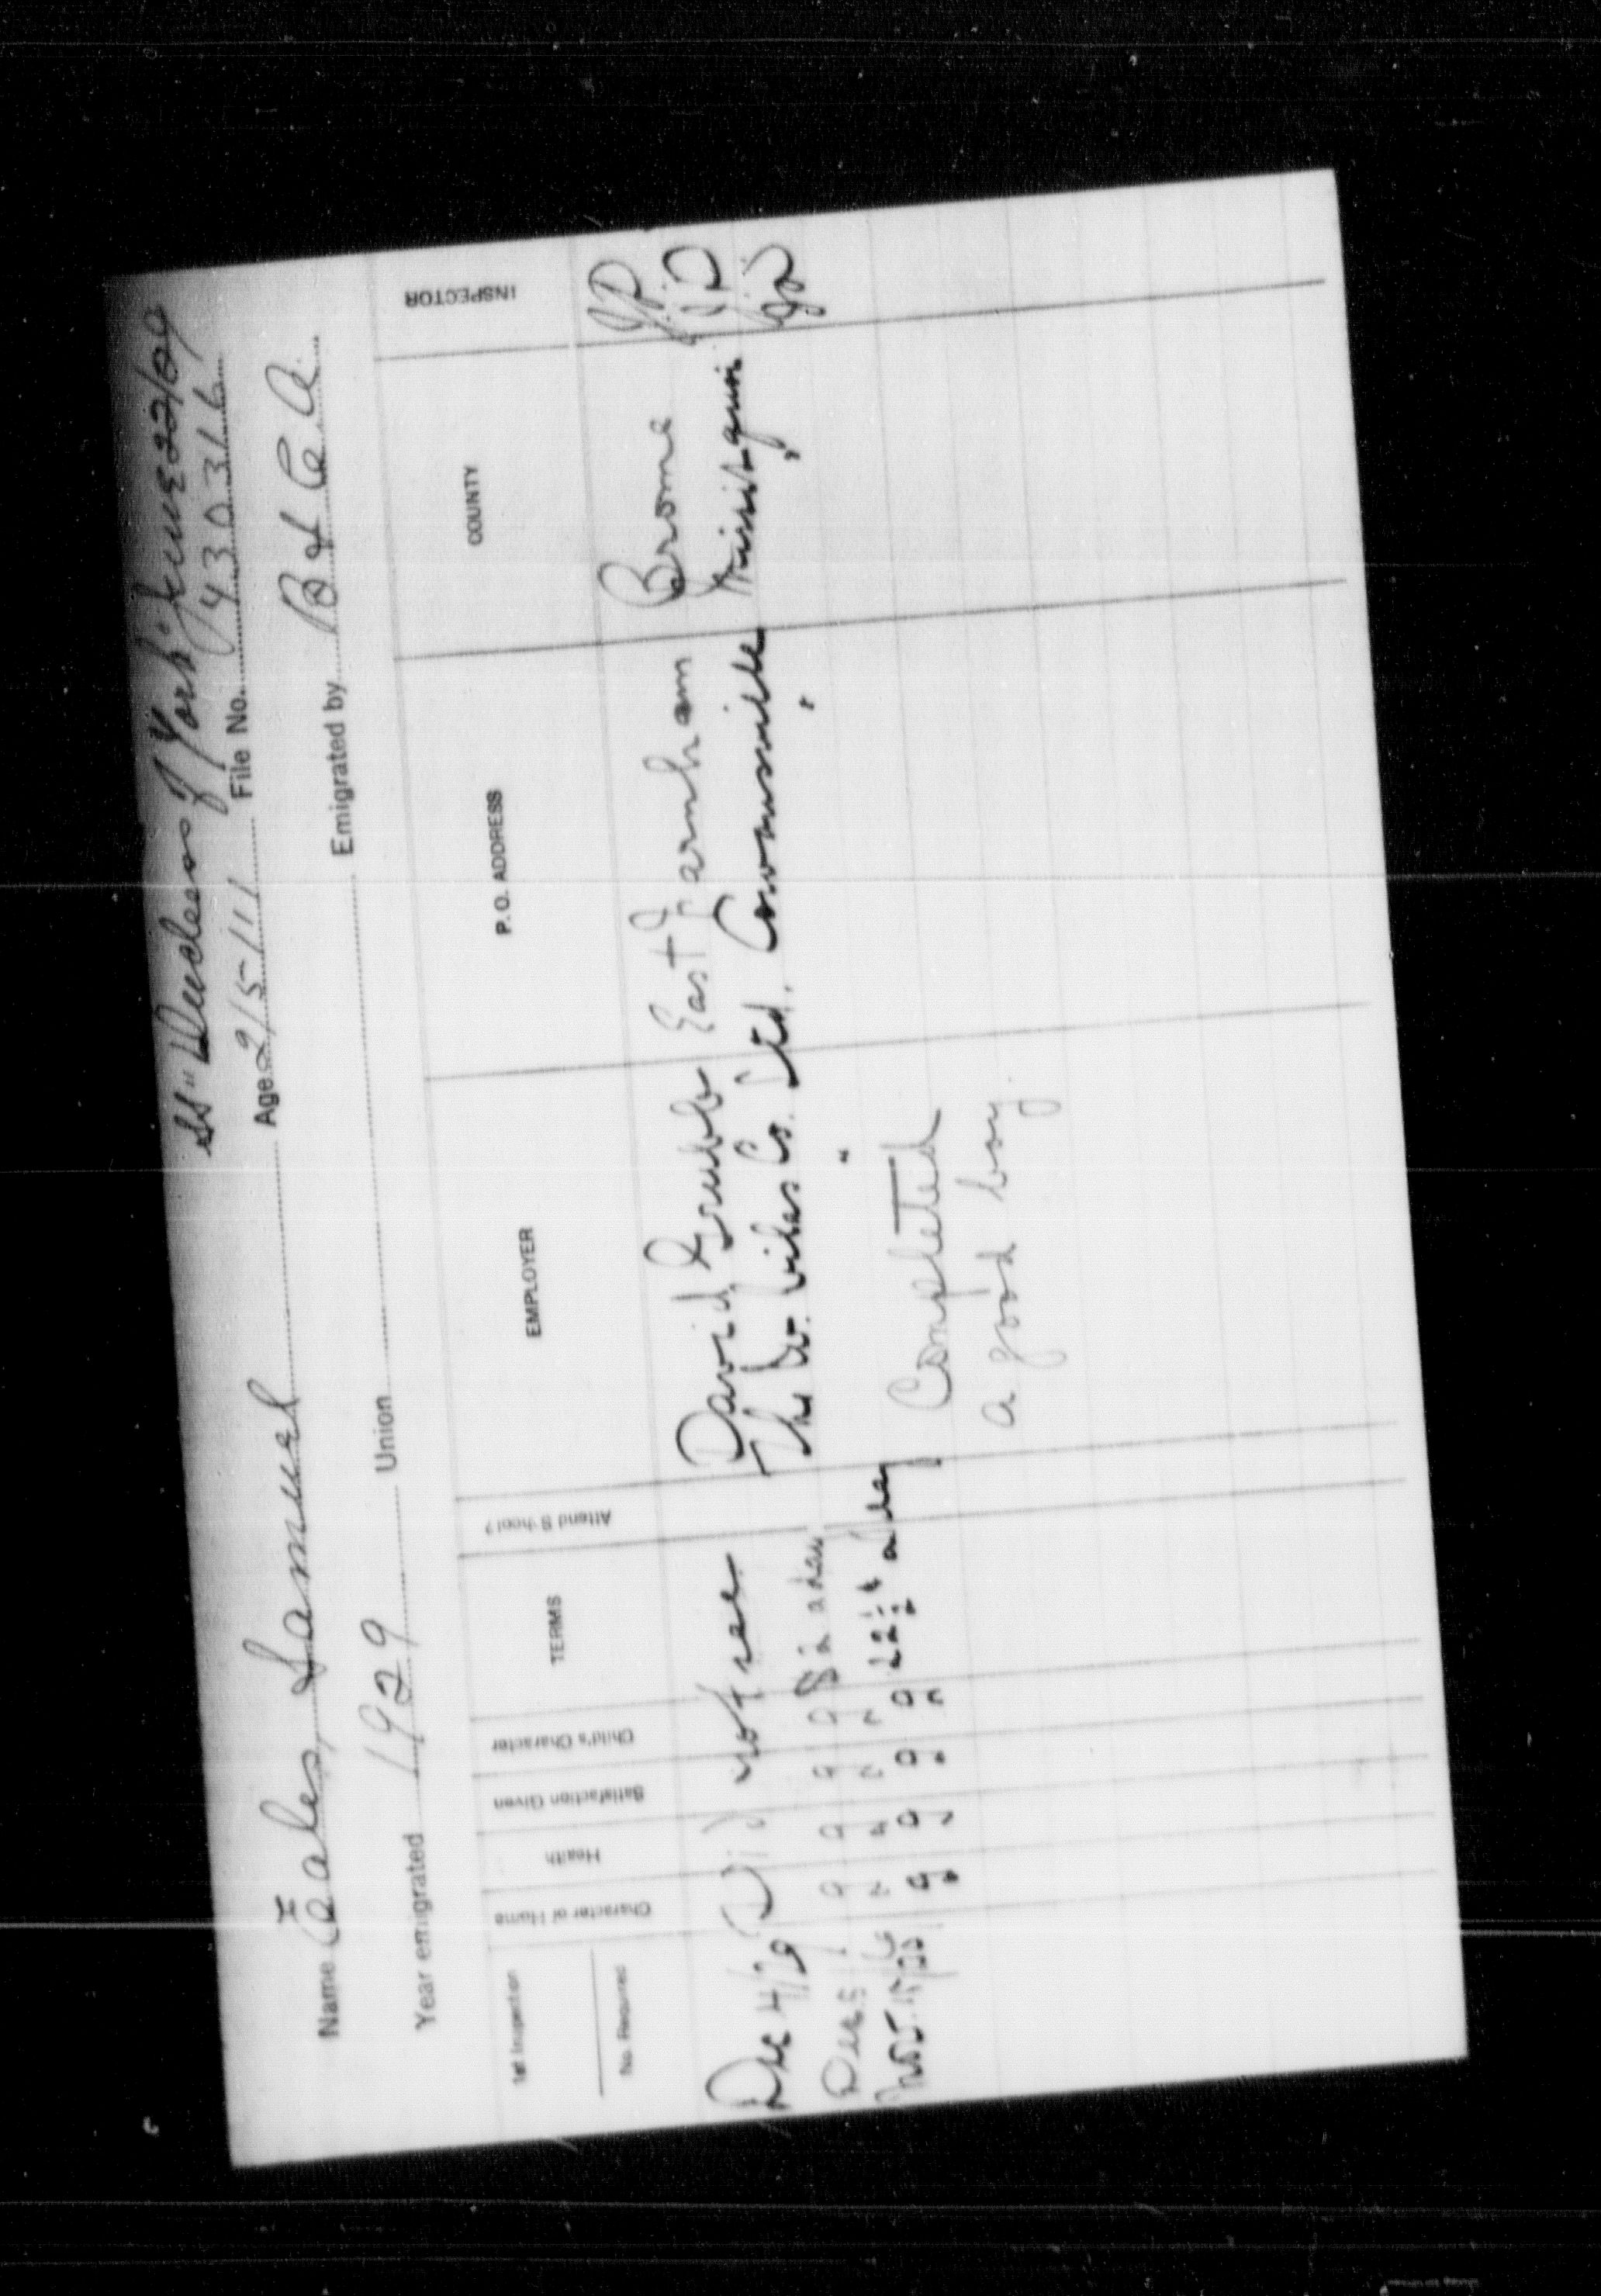 SS "Duchess of York" June 22/29
Name Eales, Samuel Age 2/5/11 File No. 430316
Year emigrated 1929 Union Emigrated by B & C A
1st Inspection
No. Required
Character of Home
Health
Satisfaction Given
Child's Character
TERMS
Attend School?
EMPLOYER
P. O. ADDRESS
COUNTY
INSPECTOR
Dec 4/29 Did not see David Grubb East Farnham Brome JP
Dec 5 g g g g The Co. Ltd. Cowansville Missisquoi
Nov g g g g a day
Completed
a good boy